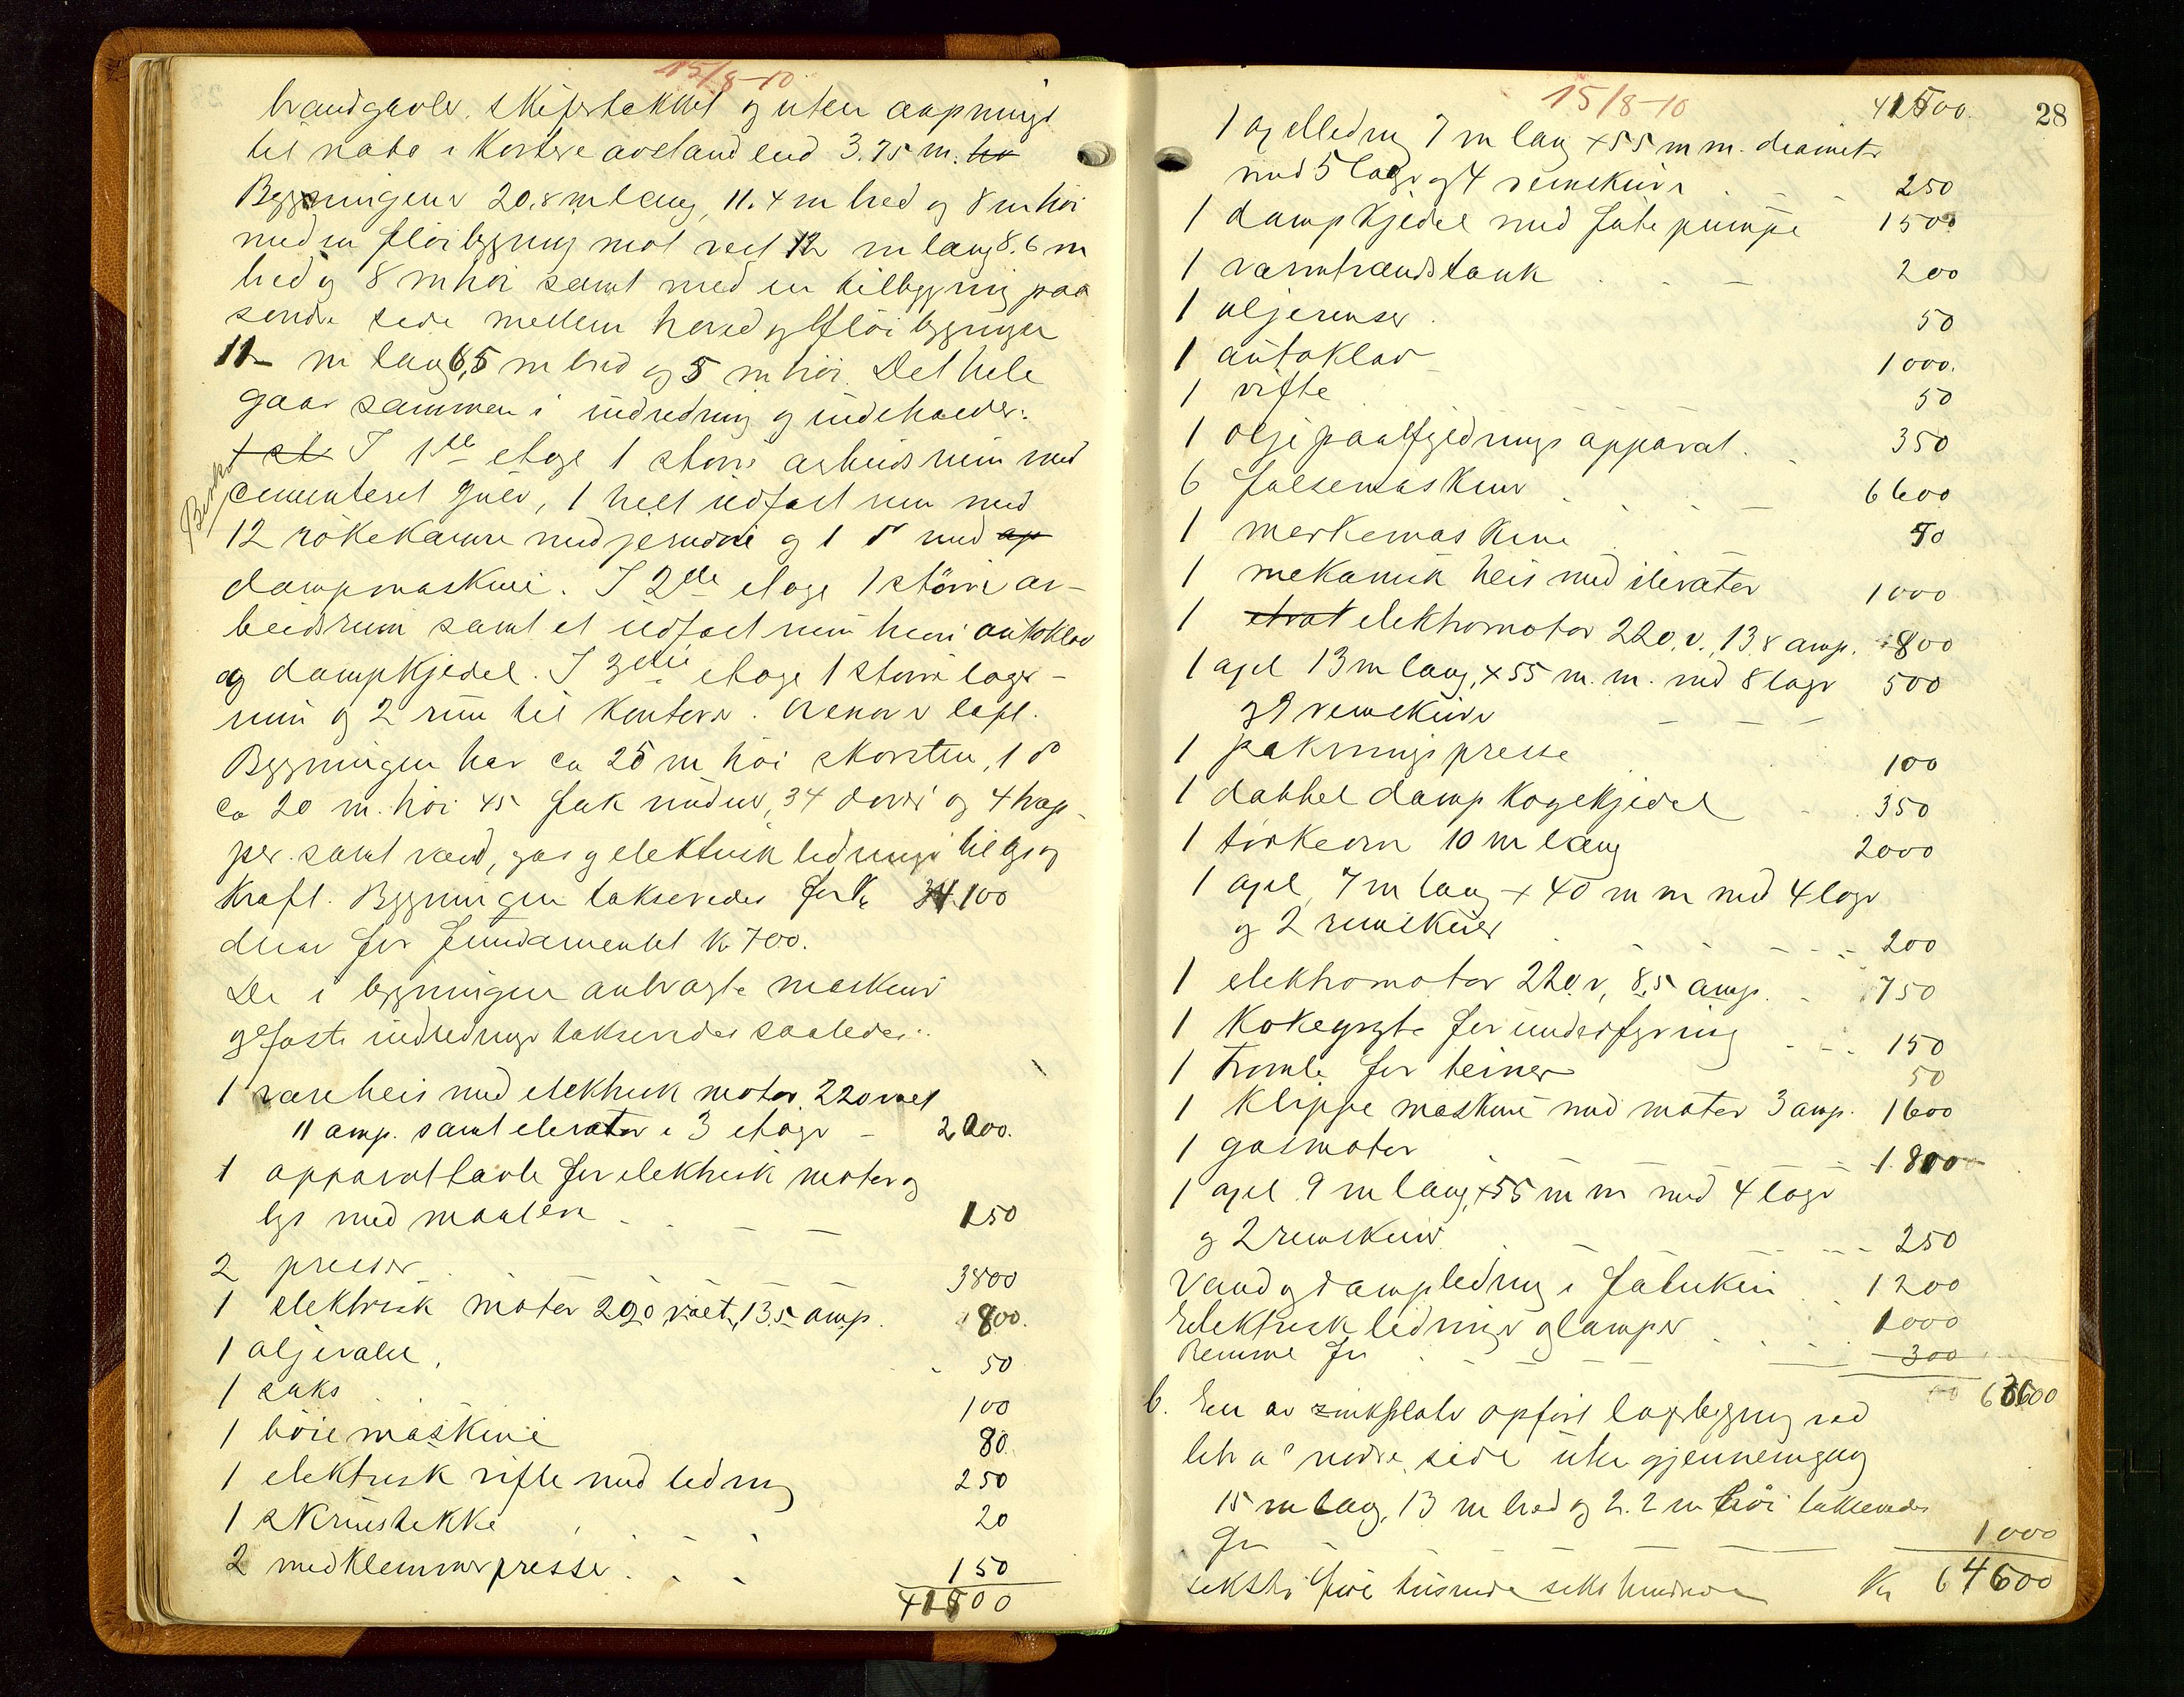 15/8-10
brandgavler, skifertækket og uten aapninger
til nabo i kortere avstand end 3.75 m. ho
Bygningen er 20.8 m lang, 11.4 m bred og 8 m høi
med en fløibygning mot vest 12 m lang 8.6 m
bred og 8 m høi samt med en tilbygning paa
søndre side mellem hoved og fløibygningen
11 m lang 6,5 m bred og 5 m høi. Det hele
gaar sammen i indredning og indeholder:
I 1ste etage 1 større arbeidsrum med
cementeret gulv, 1 helt ildfast rum med
12 røkekamre med jerndøre og 1 do med ap
dampmaskine. I 2den etage 1 større ar-
beidsrum samt et ildfast rum hvori autoklav
og dampkjedel. I 3die etage 1 større lager-
rum og 2 rum til kontorer. Ovenover loft.
Bygningen har ca 25 m høi skorsten, 1 do
ca 20 m. høi 45 fak vinduer, 34 dører og 4 trap-
per samt vand, gas og elektrisk ledninger til lys og
kraft. Bygningen takseredes for Kr 34100
derav for fundamentet Kr 700.
De i bygningen anbragte maskiner
og faste indredninger takseredes saaledes:
1 vareheis med elektrisk motor 220 volt
11 amp. samt elevator i 3 etager - 2200.
1 apparattavle for elektrisk motor og
lys med maalere - - 150
2 presser 3800
1 elektrisk motor 220 volt, 13.5 amp. 800.
1 oljevalse 50
1 saks 100
1 bøiemaskine 80.
1 elektrisk vifte med ledning 250
1 skruestikke 20
2 medklemmerpresser 150
41500
15/8-10
28
41500.
1 axelledning 7 m lang x 55 m m. diameter
med 5 lager og 4 remskiver 250
1 dampkjedel med føtepumpe 1500
1 varmtvandstank 200
1 oljerenser 50
1 autoklav 1000.
1 vifte 50
1 oljepaafyldnings apparat 350
6 falsemaskiner 6600
1 merkemaskine 50
1 mekanisk heis med elevator 1000
1 elektromotor 220.v., 13.8 amp. 800
1 axel 13 m lang, x 55 m. m. med 8 lager 500
og 9 remskiver - - -
1 pakningspresse 100
1 dobbel dampkogekjedel 350
1 tørkeovn 10 m lang 2000
1 axel 7 m lang x 40 m m med 4 lager
og 2 remskiver 200
1 elektromotor 220.v, 8.5 amp. 750
1 kokegryte for underfyring 150
1 tromle for teiner 50
1 klippemaskine med motor 3 amp. 1600
1 gasmotor 1.800
1 axel 9 m lang, x 55 m m med 4 lager
og 2 remskiver 250
Vand og dampledning i fabrikken 1200
Elektrisk ledninger og lamper 1000
Remme for 300
63600
b. En av zinkplater opført lagerbygning ved
litr a's nordre side uten gjennemgang
15 m lang, 13 m bred og 2.2 m høi takseredes
for 1000
seksti fire tusinde seks hundrede Kr 64600